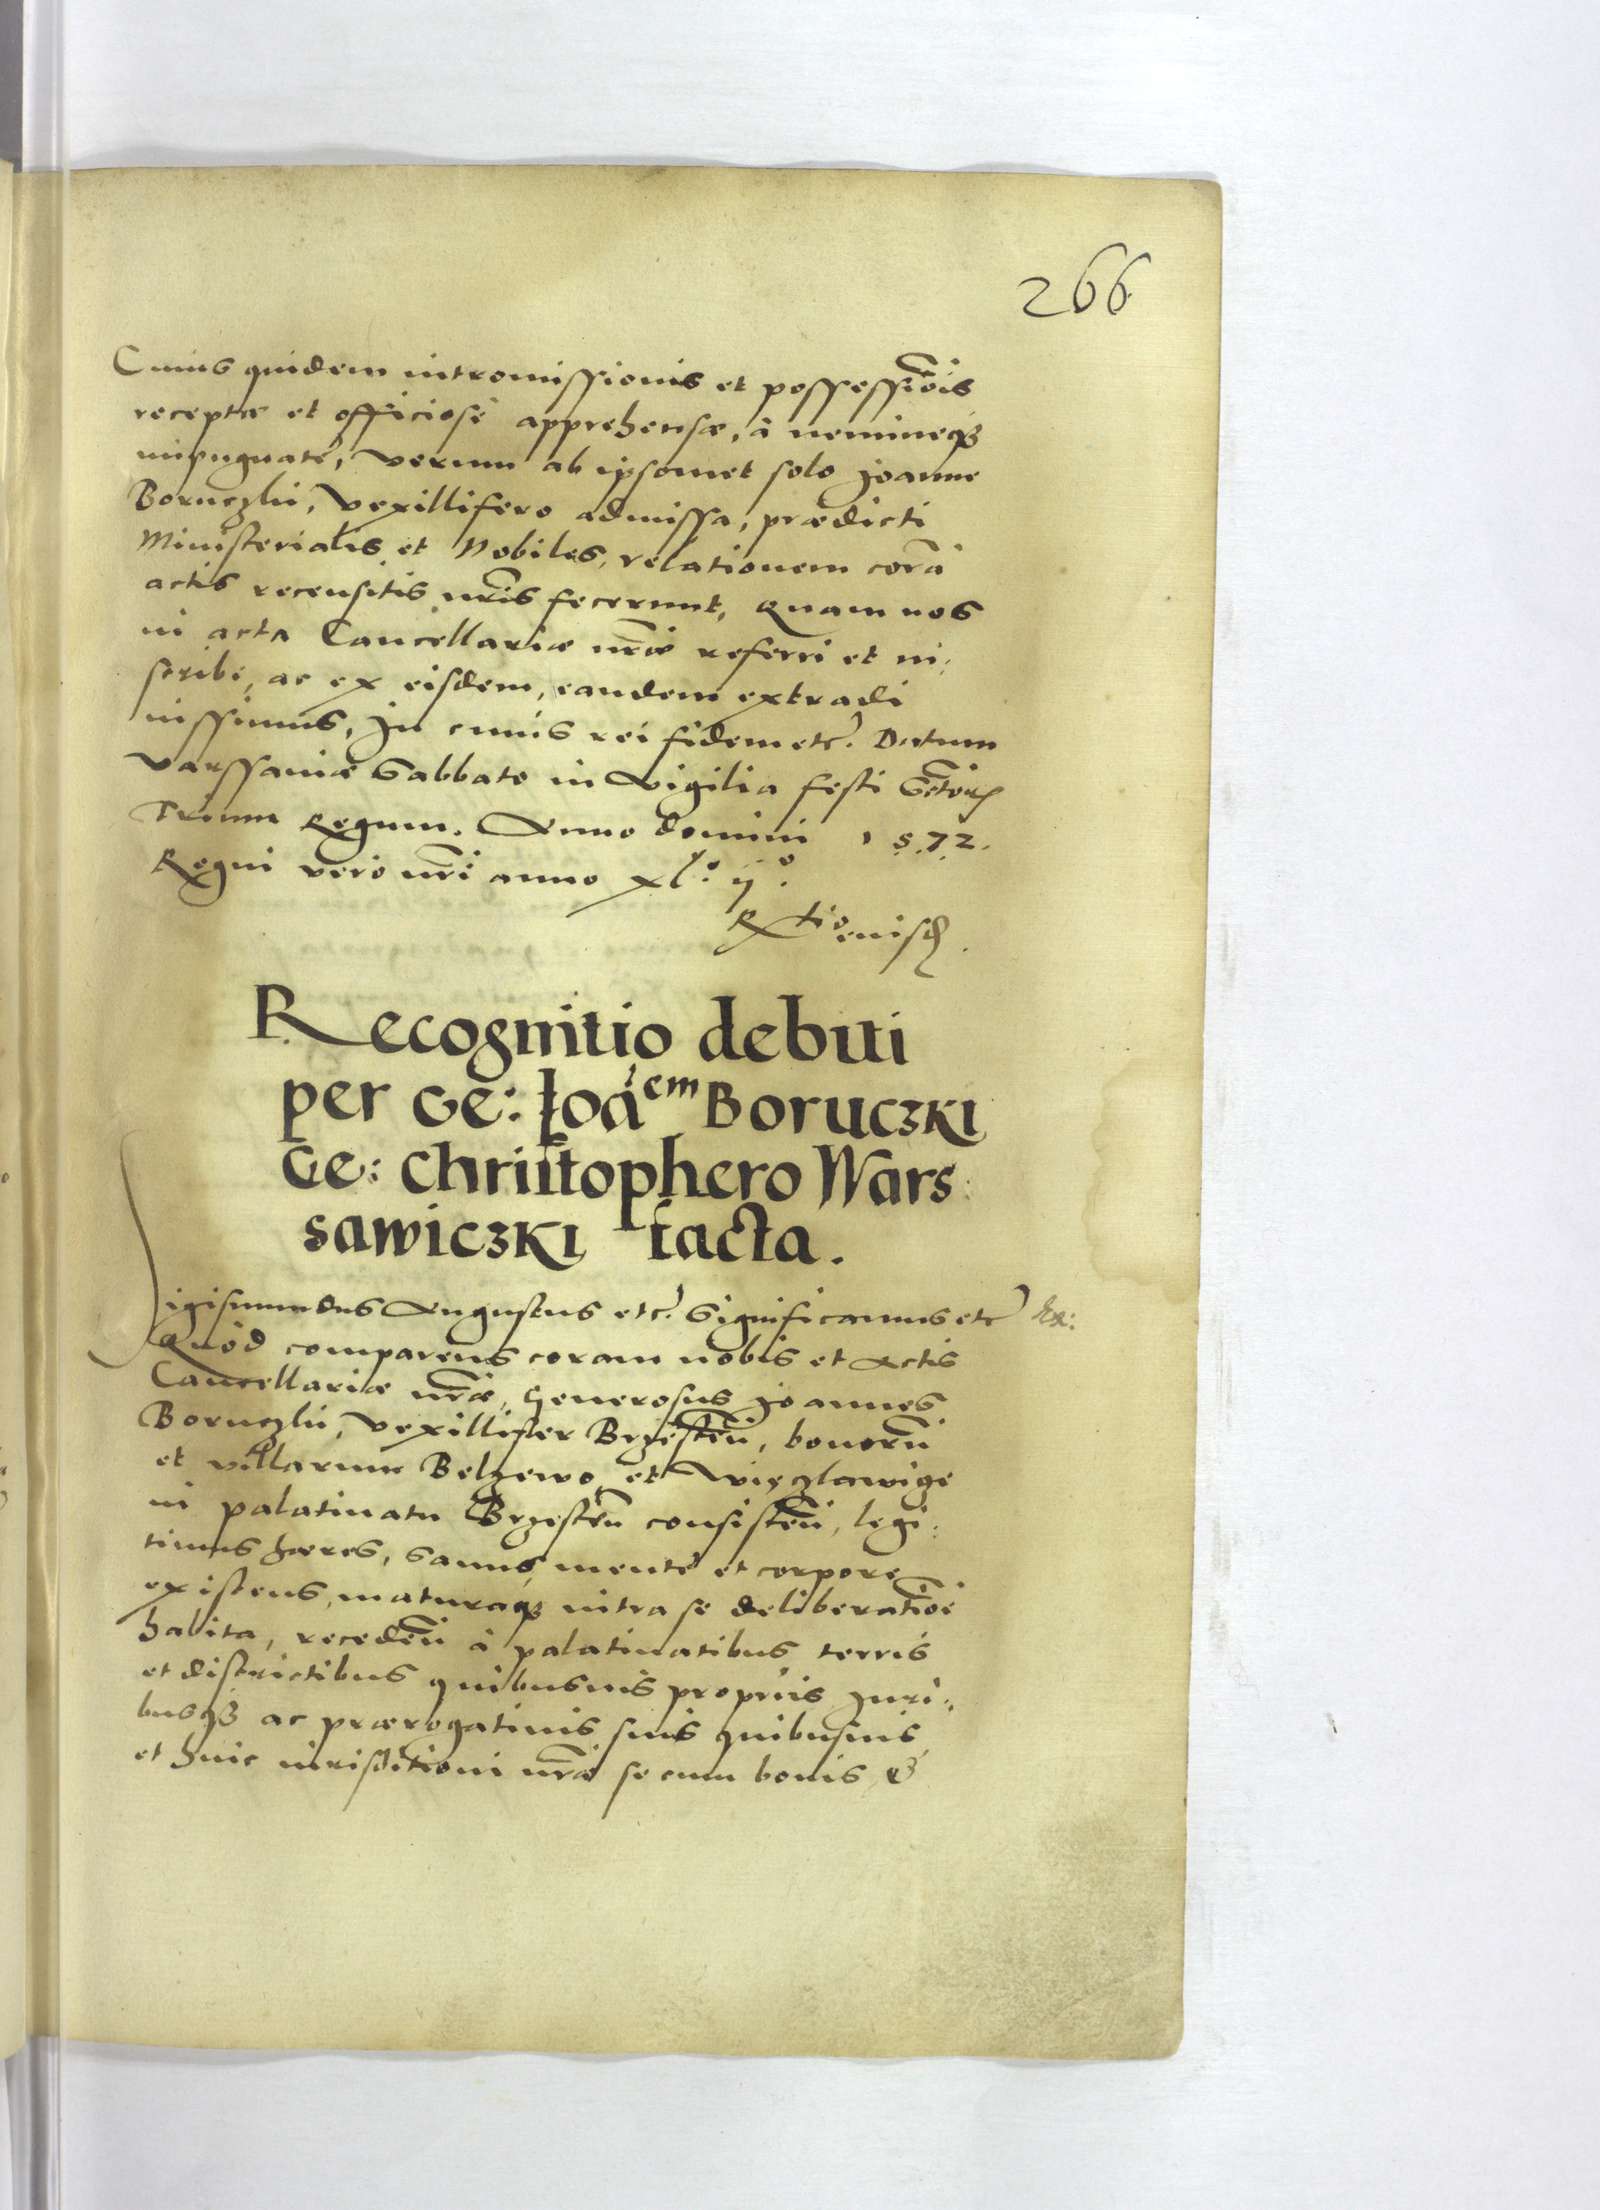 266
Cuius quidem intromissionis et possessiõis
receptæ et officiosè apprehensæ, à nemineq₃
impugnatẽ, verum ab ipsomet solo Joanne
Boruczki, Vexillifero admissa, prædicti
Ministerialis et Nobiles, relationem corã
actis recensitis nr̃is fecerunt, quam nos
in acta Cancellariæ nr̃æ referri et in:
scribi, ac ex eisdem, eandem extradi
iussimus, In cuius rei fidem etc̃. Datum
Varssaviæ Sabbato in Vigilia festi
Trium Regum. Anno domini 1572.
Regni vero nr̃i anno xlº. ijº.
Recognitio debiti
per Ge: Ioãem Boruczki
Ge: Christophero Wars:
sawiczki facta.
Sigismundus Augustus etc̃. Significamus etc̃
Quòd comparens coram nobis et Actis
Cancellariæ nr̃æ, Generosus Joannes
Boruczki, Vexillifer Brzesteñ, bonorũ
et villarum Belzewo et Więczlawicze
in palatinatu Brzesteñ consisteñ, legi:
timus hæres, sanus mente et corpore
existens, maturaq₃ intra se deliberatiõe
habita, recedeñ à palatinatibus terris
et districtibus quibusuis proprijs Juri:
busq₃ ac prærogatiuis suis quibusuis,
et huic iurisdictioni nr̃æ se cum bonis, &